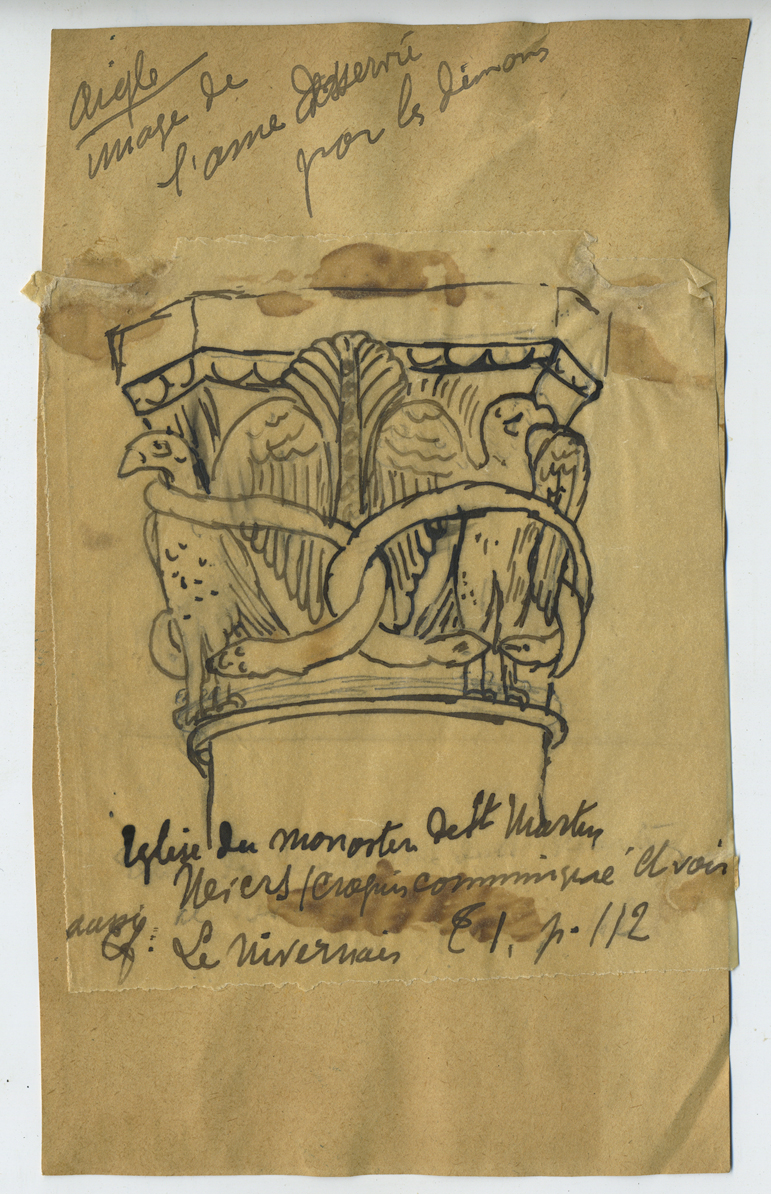 Aigle
image de
l'ame
par les démons
Eglise du monastère de St Martin
Nevers / croquis communiqué et voir
aussi
Cf: Le Nivernais T 1, p. 112